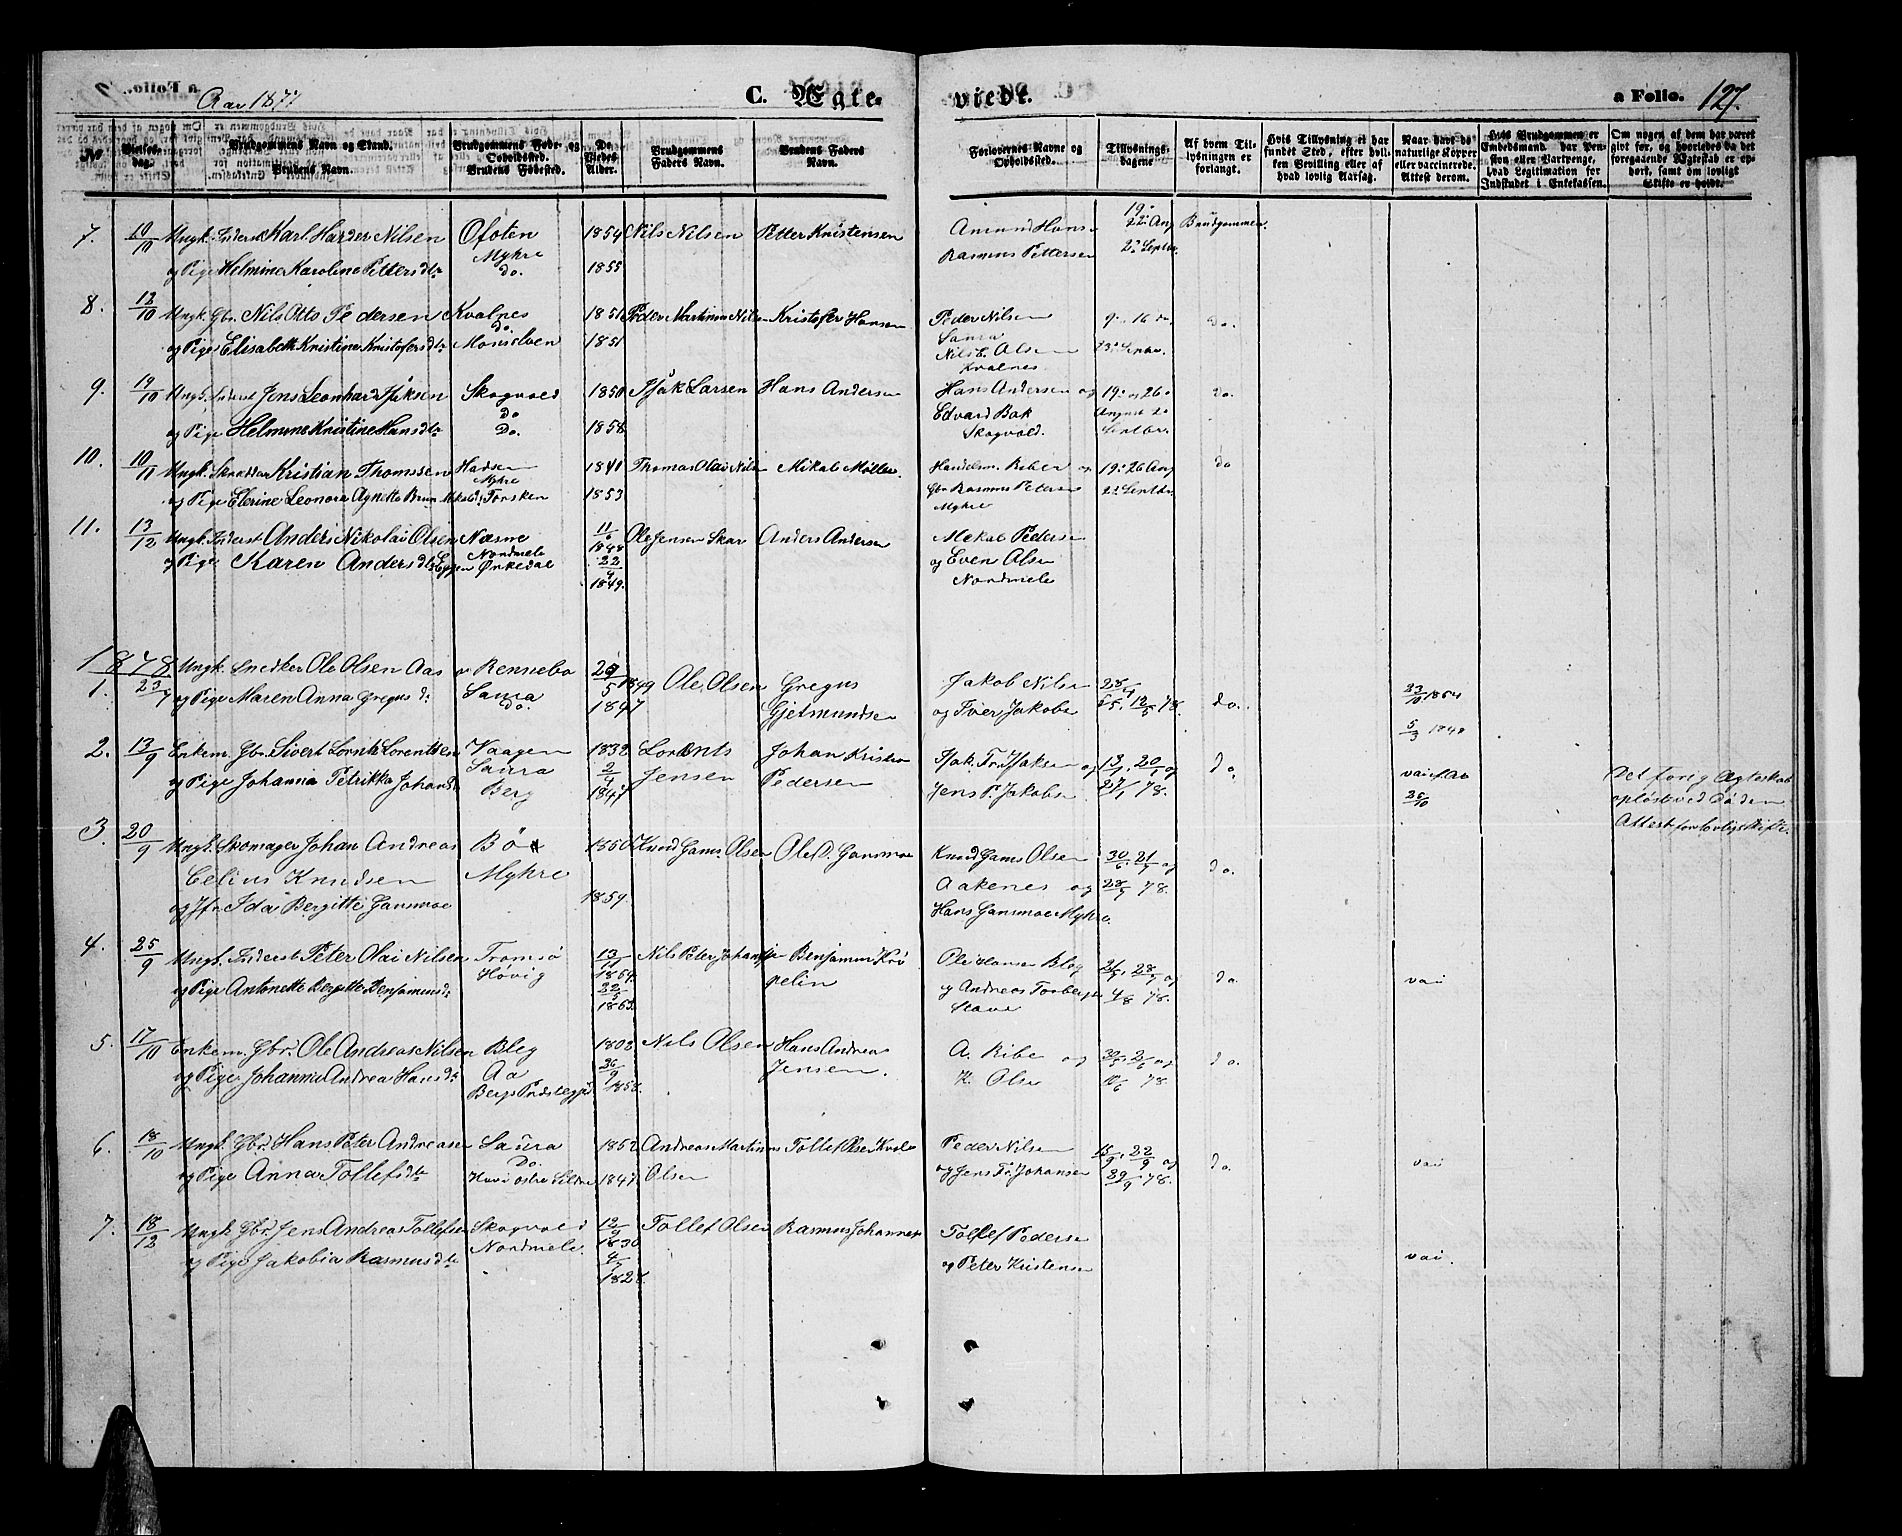 Aar 1877
C. Ægte-
viede.
a Folio. 127.
No
Vielses-dag.
Brudgommens Navn og Stand.
Brudens Navn.
Brudgommens Føde- og Opholdssted.
Brudens Fødested.
De Viedes Alder.
Brudgommens Faders Navn.
Brudens Faders Navn.
Forlovernes Navne og Opholdssted.
Tillysnings-dagene
Af hvem Til-lysningen er forlangt.
Hvis Tillysning ei har fundet Sted, efter hvil-ken Bevilling eller af hvad lovlig Aarsag.
Naar have de naturlige Kopper eller vaccinerede. Attest derom.
Hvis Brudgommen er Embedsmand, har Pen-sion eller Vartpenge, hvad Legitimation for Indskudet i Enkekassen.
Om nogen af dem har været givt før, og hvorledes da det foregaaende Ægteskab er op-hørt, samt om lovligt Skifte er holdt.
7. 10/10 Ungk. Inderst Karl Harder Nilsen Ofoten 1854 Nils Nilsen Petter Kristensen Amund Hans 19. 22. Aug Brudgommen.
Myhre
og Pige Helmine Karoline Pettersdtr do. 1855 Rasmus Pettersen 2. Septbr.
8. 12/10 Ungk. Gbr. Nils Otto Pedersen Kvalnes 1851 Peder Martinus Nilsen Kristofer Hansen Peder Nilsen 9. 16 do.
do. Saura
og Pige Elisabeth Kristine Kristofersdtr Maaselven 1851 Nils C. Olsen Septbr.
Kvalnes
9. 19/10 Ungk. Inderst Jens Leonhard Isaksen Skogvold 1850 Isak Larsen Hans Andersen Hans Andersen og 19. og 26. do.
do Edvard Bak August 2
og Pige Helmine Kristine Hansdtr Do. 1858 Skogvold. Septbr.
10. 10/11 Ungk. Skrædder Kristian Thomssen Hadsen 1841 Thomas Olai Nilsen Mikal Møller Handelsm. Riber og 19. 26 Aug do
Myhre
og Pige Elerine Leonora Agnette Brun Mikalsd. Torsken 1853 Gbr Rasmus Petersen 2. Septbr.
Myhre
11. 13/12 Ungk. Inderst Anders Nikolai Olsen Næsne 11/6 1848 Ole Jensen Skar Anders Andersen Mekal Pedersen
Nordmele
og Pige Karen Andersdtr Eggen Ørkedal 22/4 1849. og Even Olsen
Nordmele
1878
1. 23/7 Ungk. Snedker Ole Olsen Aas Rennebo 29/5 1849 Ole Olsen Gregus Jakob Nilsen 28/4 23/10 1864
og Pige Maren Anna Gregusd. Saura 1847 Gjetmundsen og Iver Jakobsen 5/5, 12/5 78. do.
do. 5/3 1848
2. 13/9 Enkem. Gbr. Sivert Lornts Lorentsen Vaagen 1832 Lorents Johan Kristian Isak Fr. Isaksen og 13/1, 20/1 og do.
Saura Det forig Ægteskab
og Pige Johanna Petrikka Johansd. Berg 2/4 1847 Jensen Pedersen Jens P. Jakobsen 27/1 78. opløst ved Døden
Attest for lovlig Skifte.
3. 20/9 Ungk. Skomager Johan Andreas Bø 1850 Knud Gams Olsen Ole O. Gansmoe Knud Gams Olsen 30/6, 21/7 og do.
Celius Knudsen Myhre Aakenes og 28/7 78.
og Jfr. Ida Bergitte Gansmoe 1859. Hans Gansmoe Myhre
4. 25/9 Ungk. Inderst Peter Olai Nilsen Tromsø 13/11 1854 Nils Peter Johansen Benjamin Krø Ole Hansen Bleg 21/7, 28/7 og do. vai
Høvig
og Pige Antonette Bergitte Benjaminsd. 22/5 1862 pelin og Andreas Torbergs 4/8 78.
Stave
5. 17/10 Enkem. Gbr. Ole Andreas Nilsen Bleg 1808 Nils Olsen Hans Andreas A. Ribe og do.
Aa
og Pige Johanna Andrea Hansdtr Bergs Præstegjæld 1858. Jensen. K. Olsen 10/6 78.
6. 18/10 Ungk. Gbr. Hans Peter Andreasen Saura 1852 Andreas Martinus Tollef Olsen Kvale Peder Nilsen 15/9, 22/9 og do. vai
Do.
og Pige Anna Tollefsdtr 1847 Olsen og Jens Fr. Johansen 29/9 78.
7. 18/12 Ungk. Gbr. Jens Andreas Tollefsen Skogvold 12/9 1830 Tollef Olsen Rasmus Johannesen Tollef Pedersen
Nordmele vai.
og Pige Jakobia Rasmusdtr 1828. og Peter Kristensen